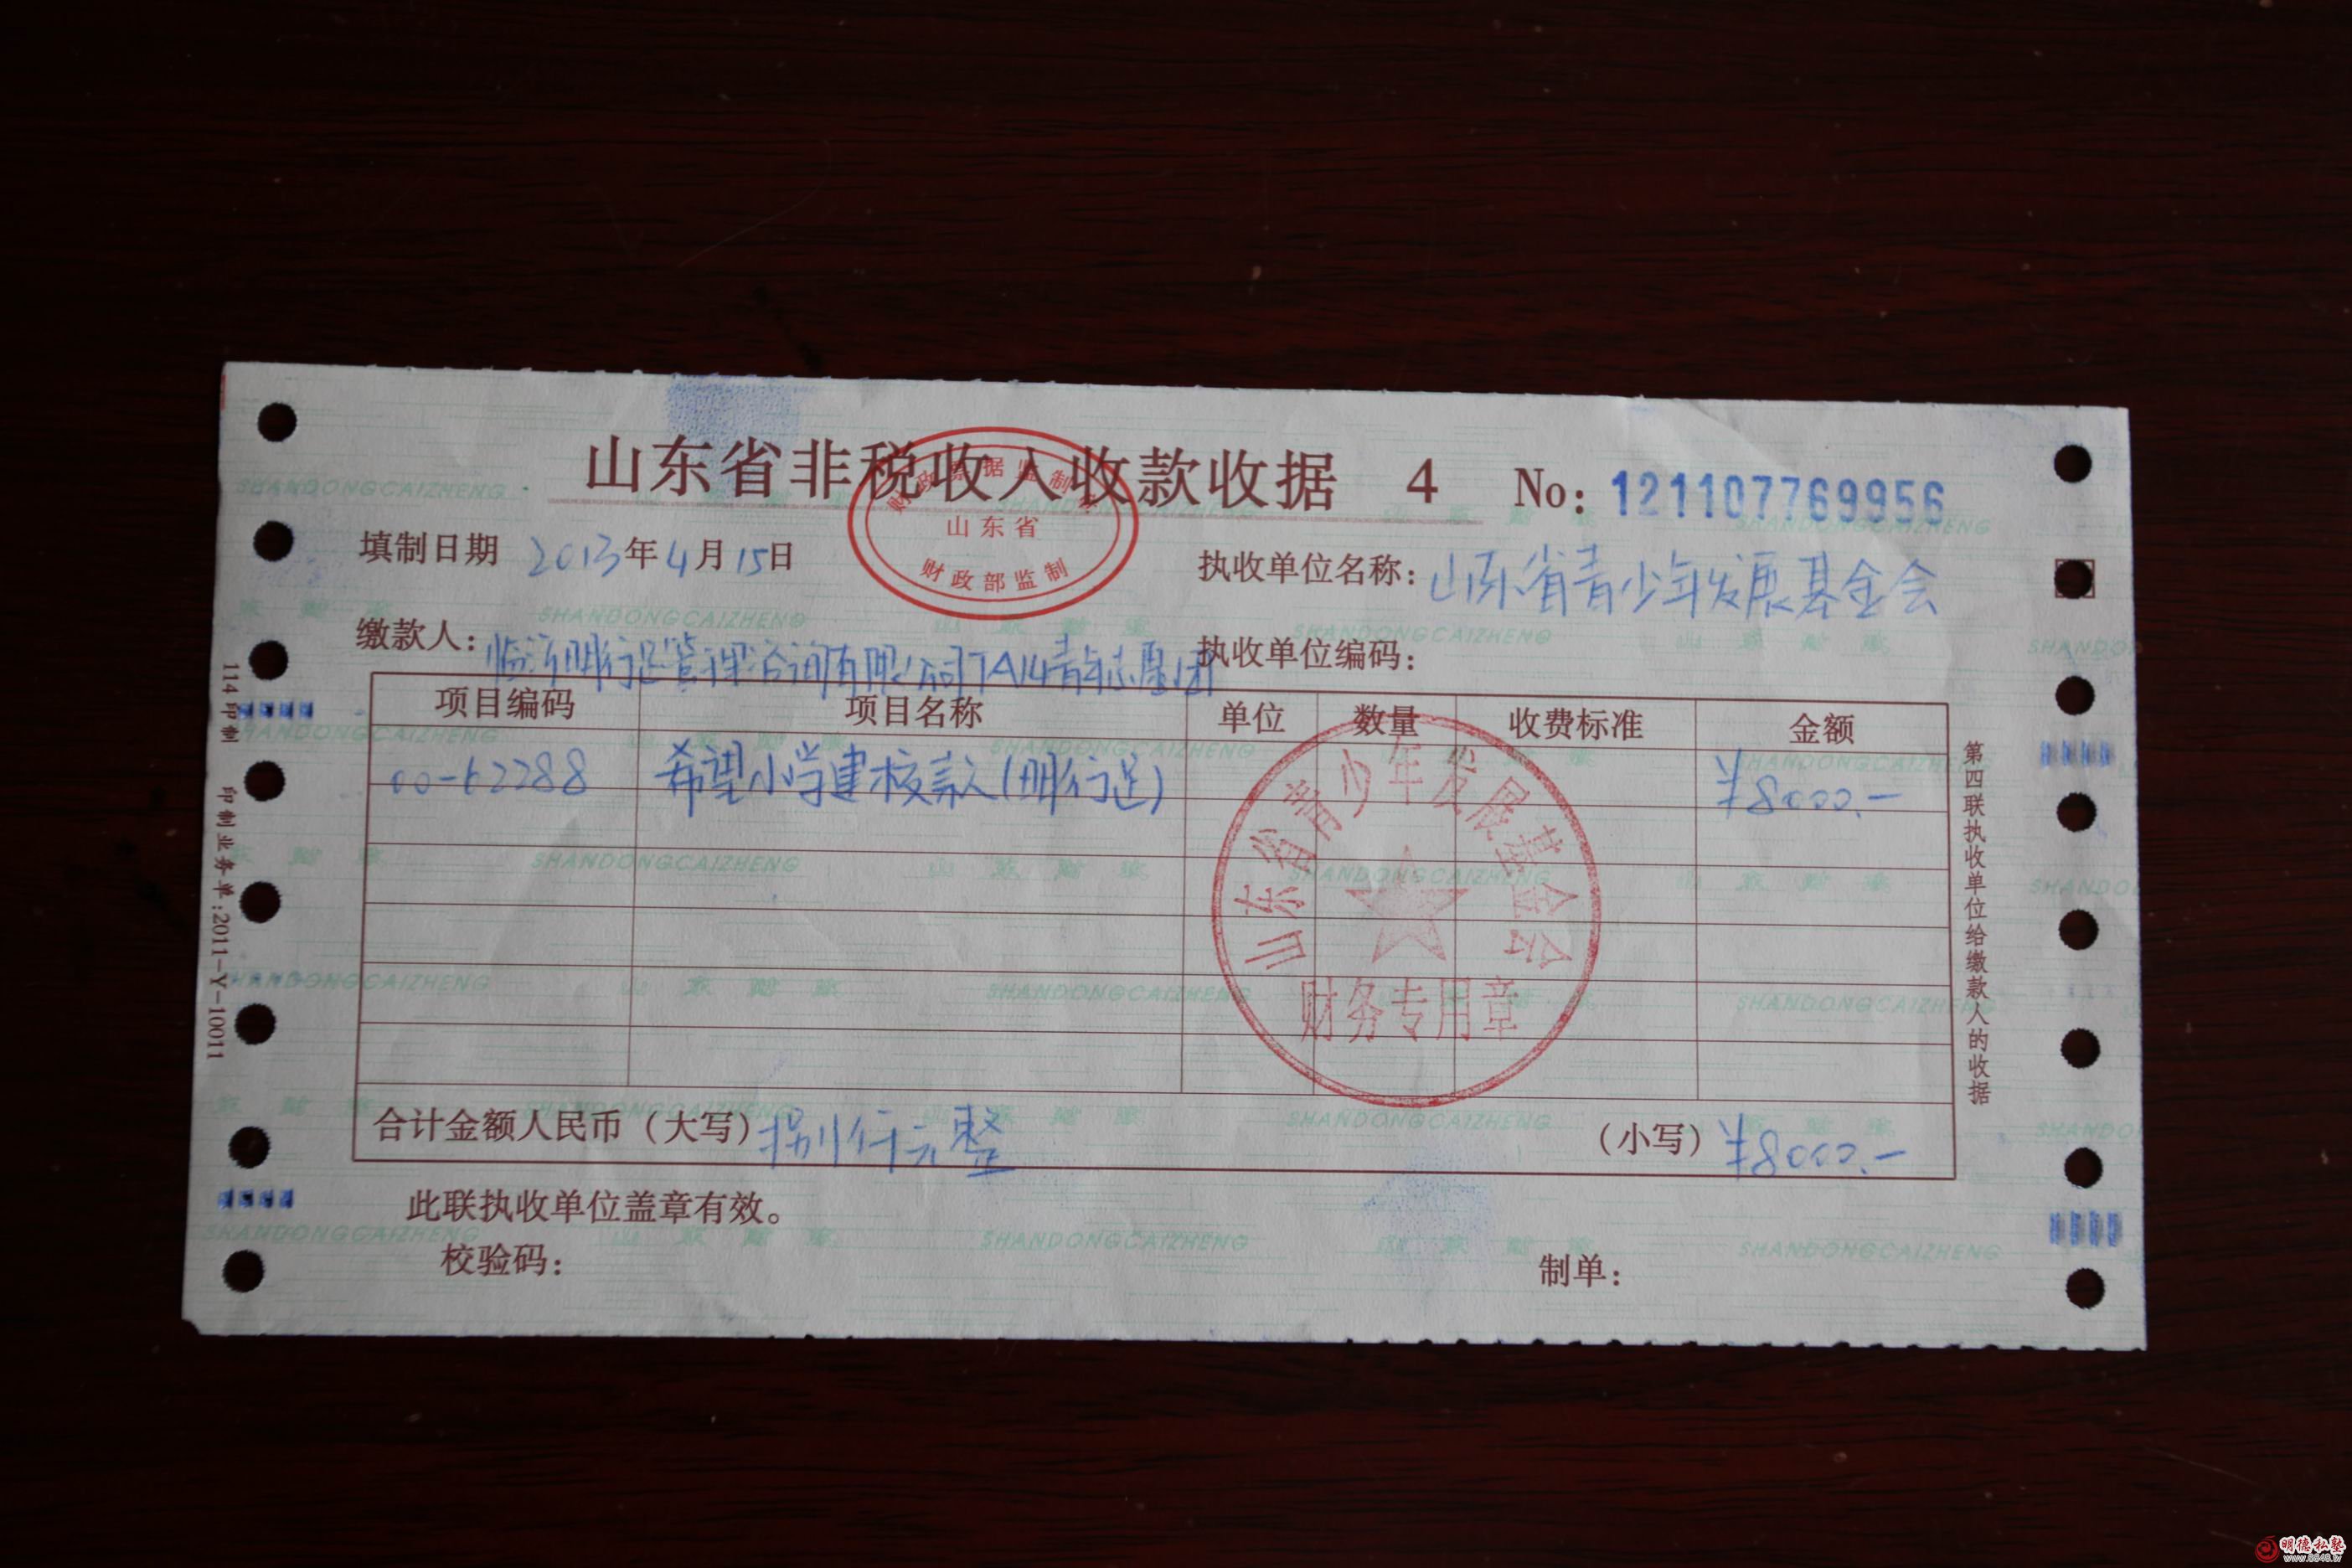 山东省非税收入收款收据 4 No: 121107769956
财政票据监制章
山东省
财政部监制
填制日期 2013年4月15日 执收单位名称: 山东省青少年发展基金会
缴款人: 临沂明行足管理咨询有限公司TA14青年志愿团 执收单位编码:
项目编码 项目名称 单位 数量 收费标准 金额
00-62288 希望小学建校款(明行足) ¥8000.—
山东省青少年发展基金会
财务专用章
合计金额人民币(大写) 捌仟元整 (小写) ¥8000.—
此联执收单位盖章有效。
校验码: 制单:
第四联执收单位给缴款人的收据
114印制 印制业务单:2011-Y-10011
SHANDONGCAIZHENG
明德私塾